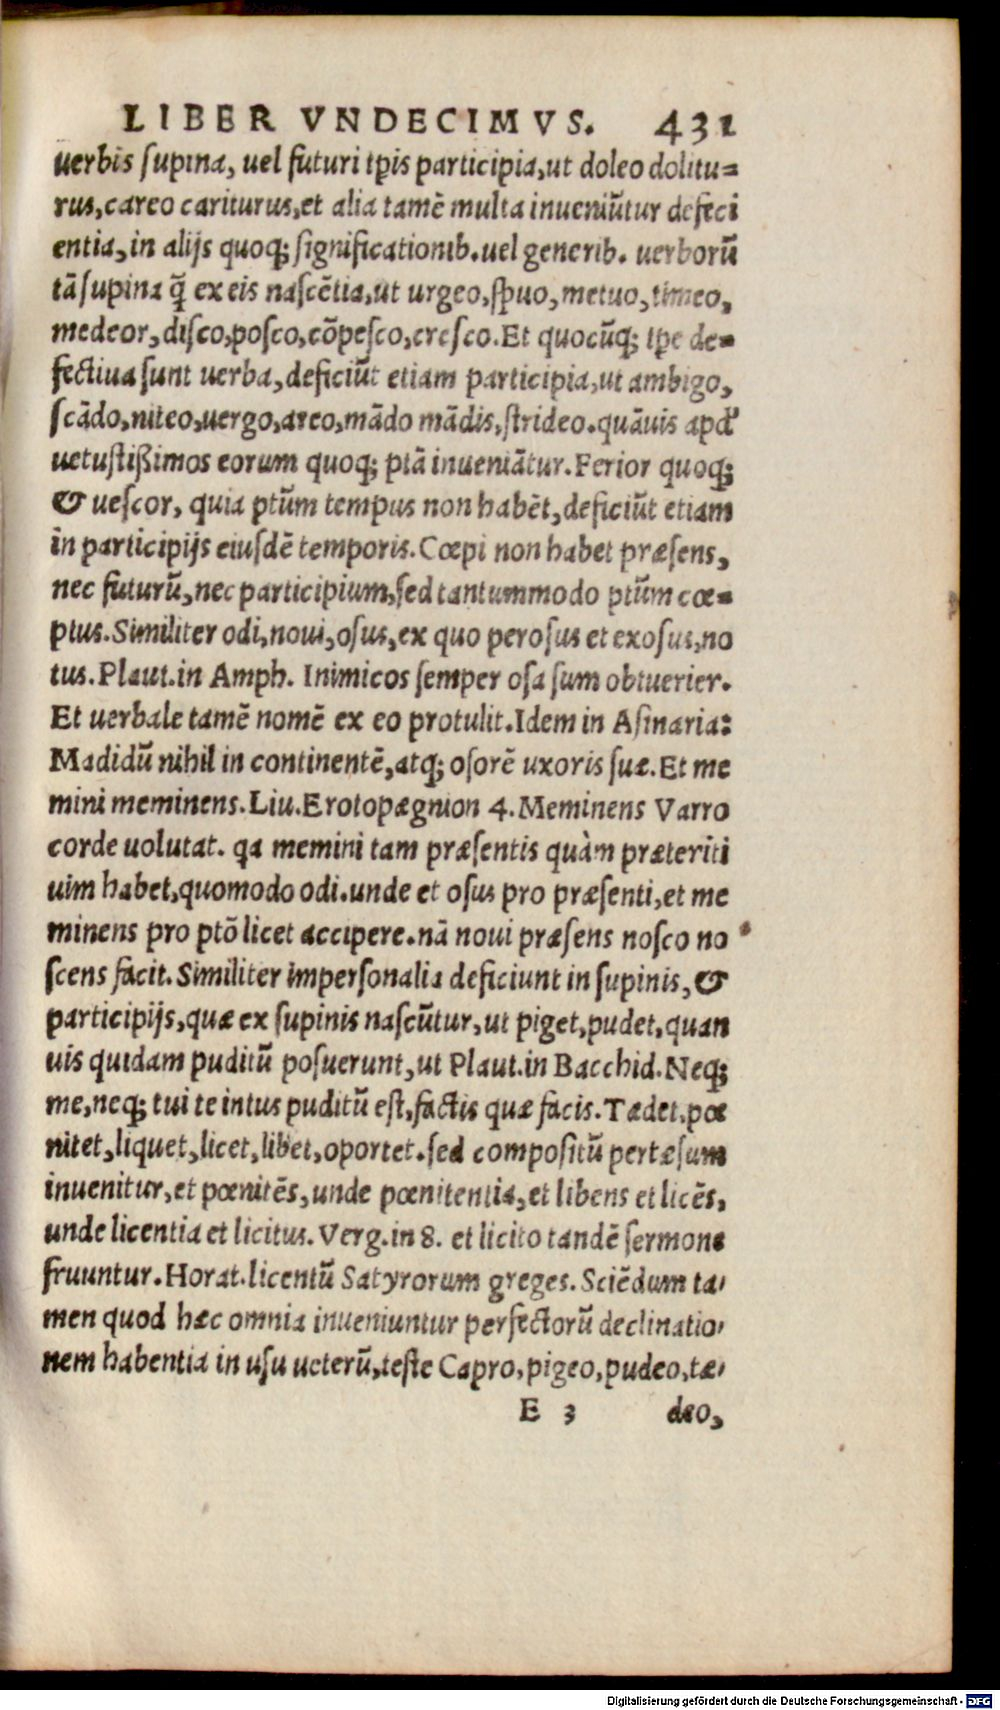 LIBER VNDECIMVS. 431
uerbis ſupina, uel futuri tp̄is participia,ut doleo dolitu=
rus,careo cariturus,et alia tamē multa inueniūtur defeci
entia,in alijs quoq; ſignificationib.uel generib. uerborū
tā ſupina q̄ ex eis naſcētia,ut urgeo,ſpuo,metuo,timeo,
medeor,diſco,poſco,cōpeſco,creſco.Et quocūq; tp̄e de=
fectiua ſunt uerba,deficiūt etiam participia,ut ambigo,
ſcādo,niteo,uergo,areo,mādo mādis,ſtrideo.quāuis apd'
uetuſtißimos eorum quoq; ptā inueniātur.Ferior quoq;
& ueſcor, quia ptūm tempus non habēt,deficiūt etiam
in participijs eiuſdē temporis.Cœpi non habet præſens,
nec futurū,nec participium,ſed tantummodo ptūm cœ=
ptus.Similiter odi,noui,oſus,ex quo peroſus et exoſus,no
tus.Plaut.in Amph. Inimicos ſemper oſa ſum obtuerier.
Et uerbale tamē nomē ex eo protulit.Idem in Aſinaria:
Madidū nihil in continentē,atq; oſorē uxoris ſuæ.Et me
mini meminens.Liu.Erotopægnion 4.Meminens Varro
corde uolutat. qa memini tam præſentis quàm præteriti
uim habet,quomodo odi.unde et oſus pro præſenti,et me
minens pro ptō licet accipere.nā noui præſens noſco no
ſcens facit. Similiter imperſonalia deficiunt in ſupinis,&
participijs,quæ ex ſupinis naſcūtur,ut piget,pudet,quan
uis quidam puditū poſuerunt,ut Plaut.in Bacchid.Neq;
me,neq; tui te intus puditū eſt,factis quæ facis.Tædet,pœ
nitet,liquet,licet,libet,oportet.ſed compoſitū pertæſum
inuenitur,et pœnitēs,unde pœnitentia,et libens et licēs,
unde licentia et licitus. Verg.in 8. et licito tandē ſermone
fruuntur.Horat.licentū Satyrorum greges.Sciēdum ta,
men quod hæc omnia inueniuntur perfectorū declinatio,
nem habentia in uſu ueterū,teſte Capro,pigeo,pudeo,tæ,
E 3 deo,
Digitalisierung gefördert durch die Deutsche Forschungsgemeinschaft - DFG